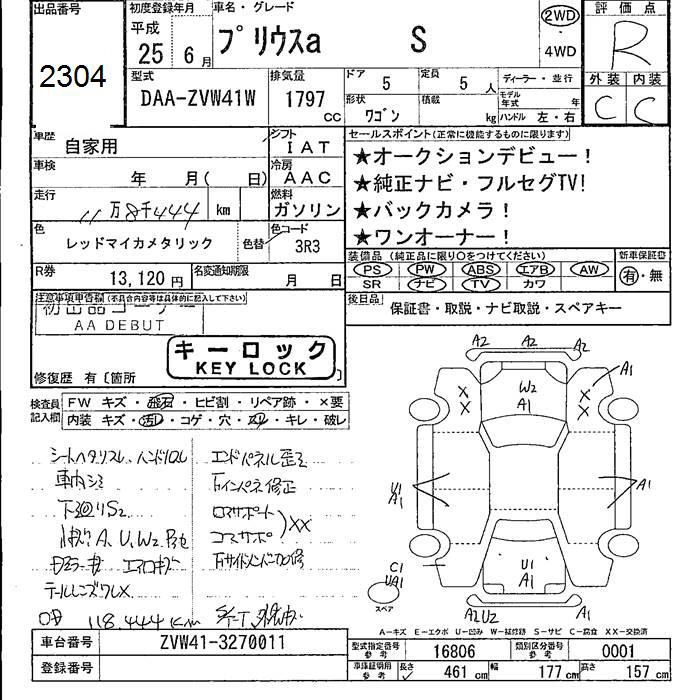 出品番号
2304
初度登録年月
平成
25年 6月
車名・グレード
プリウスa S
2WD
・
4WD
評価点
R
型式
DAA-ZVW41W
排気量
1797
CC
ドア
5
定員
5人
形状
ワゴン
積載
kg
ディーラー・並行
モデル年式 年
ハンドル 左・右
外装 内装
C C
車歴
自家用
シフト
IAT
車検
年 月( 日)
冷房
AAC
走行
11万8千444 km
燃料
ガソリン
色
レッドマイカメタリック
色替
色コード
3R3
R券
13,120円
名変通知期限
月 日
セールスポイント(正常に機能するものに限ります)
★オークションデビュー!
★純正ナビ・フルセグTV!
★バックカメラ!
★ワンオーナー!
装備品(純正品に限り○をつけてください)
PS PW ABS エアB AW
SR ナビ TV カワ
新車保証書
有・無
後日品
保証書・取説・ナビ取説・スペアキー
注意事項申告欄(不具合内容等は具体的に記入して下さい)
初出品コーナー
AA DEBUT
キーロック
KEY LOCK
修復歴 有〔箇所 〕
検査員記入欄
FW キズ・飛石・ヒビ割・リペア跡・×要
内装 キズ・汚レ・コゲ・穴・スリ・キレ・破レ
シートヘタリスレ、ハンドルスレ
車内シミ
下廻りS2
エンドパネル歪
インパネ修正
ロアサポート
コアサポ
XX
テールレンズワレX
OB 118,444 km
A2 A2 A2
W2
A1
X
X
X
X
A1
U1
A1
A1
C1
UA1
U1
A1
スペア
A2U2 A1
A-キズ E-エクボ U-凹み W-補修跡 S-サビ C-腐食 XX-交換済
車台番号
ZVW41-3270011
登録番号
型式指定番号
参考
16806
類別区分番号
参考
0001
車庫証明用
参考
長さ
461 cm
幅
177 cm
高さ
157 cm